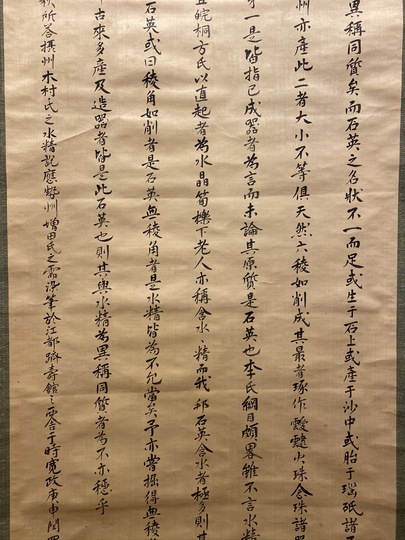 異稱同質矣而石英之名狀不一而足或生于石上或產于沙中或胎于瑙砥諸石
州亦產此二者大小不等俱天然六稜如削成其最者琢作靉靆火珠念珠諸器
一是皆指已成器者為言而未論其原質是石英也本氏綱目頗畧雖不言水精
皖桐方氏以直起者為水晶筍櫟下老人亦稱含水〻精而我邦石英含水者極多則其
石英或曰稜角如削者是石英無稜角者是水精皆為不允當矣予亦嘗掘得無稜
古來多產及造器者皆是此石英也則其與水精為異稱同質者為不亦穩乎
所答摂州木村氏之水精說應野州增田氏之需染筆於江都躋壽館之西舍于時寬政庚申閏四